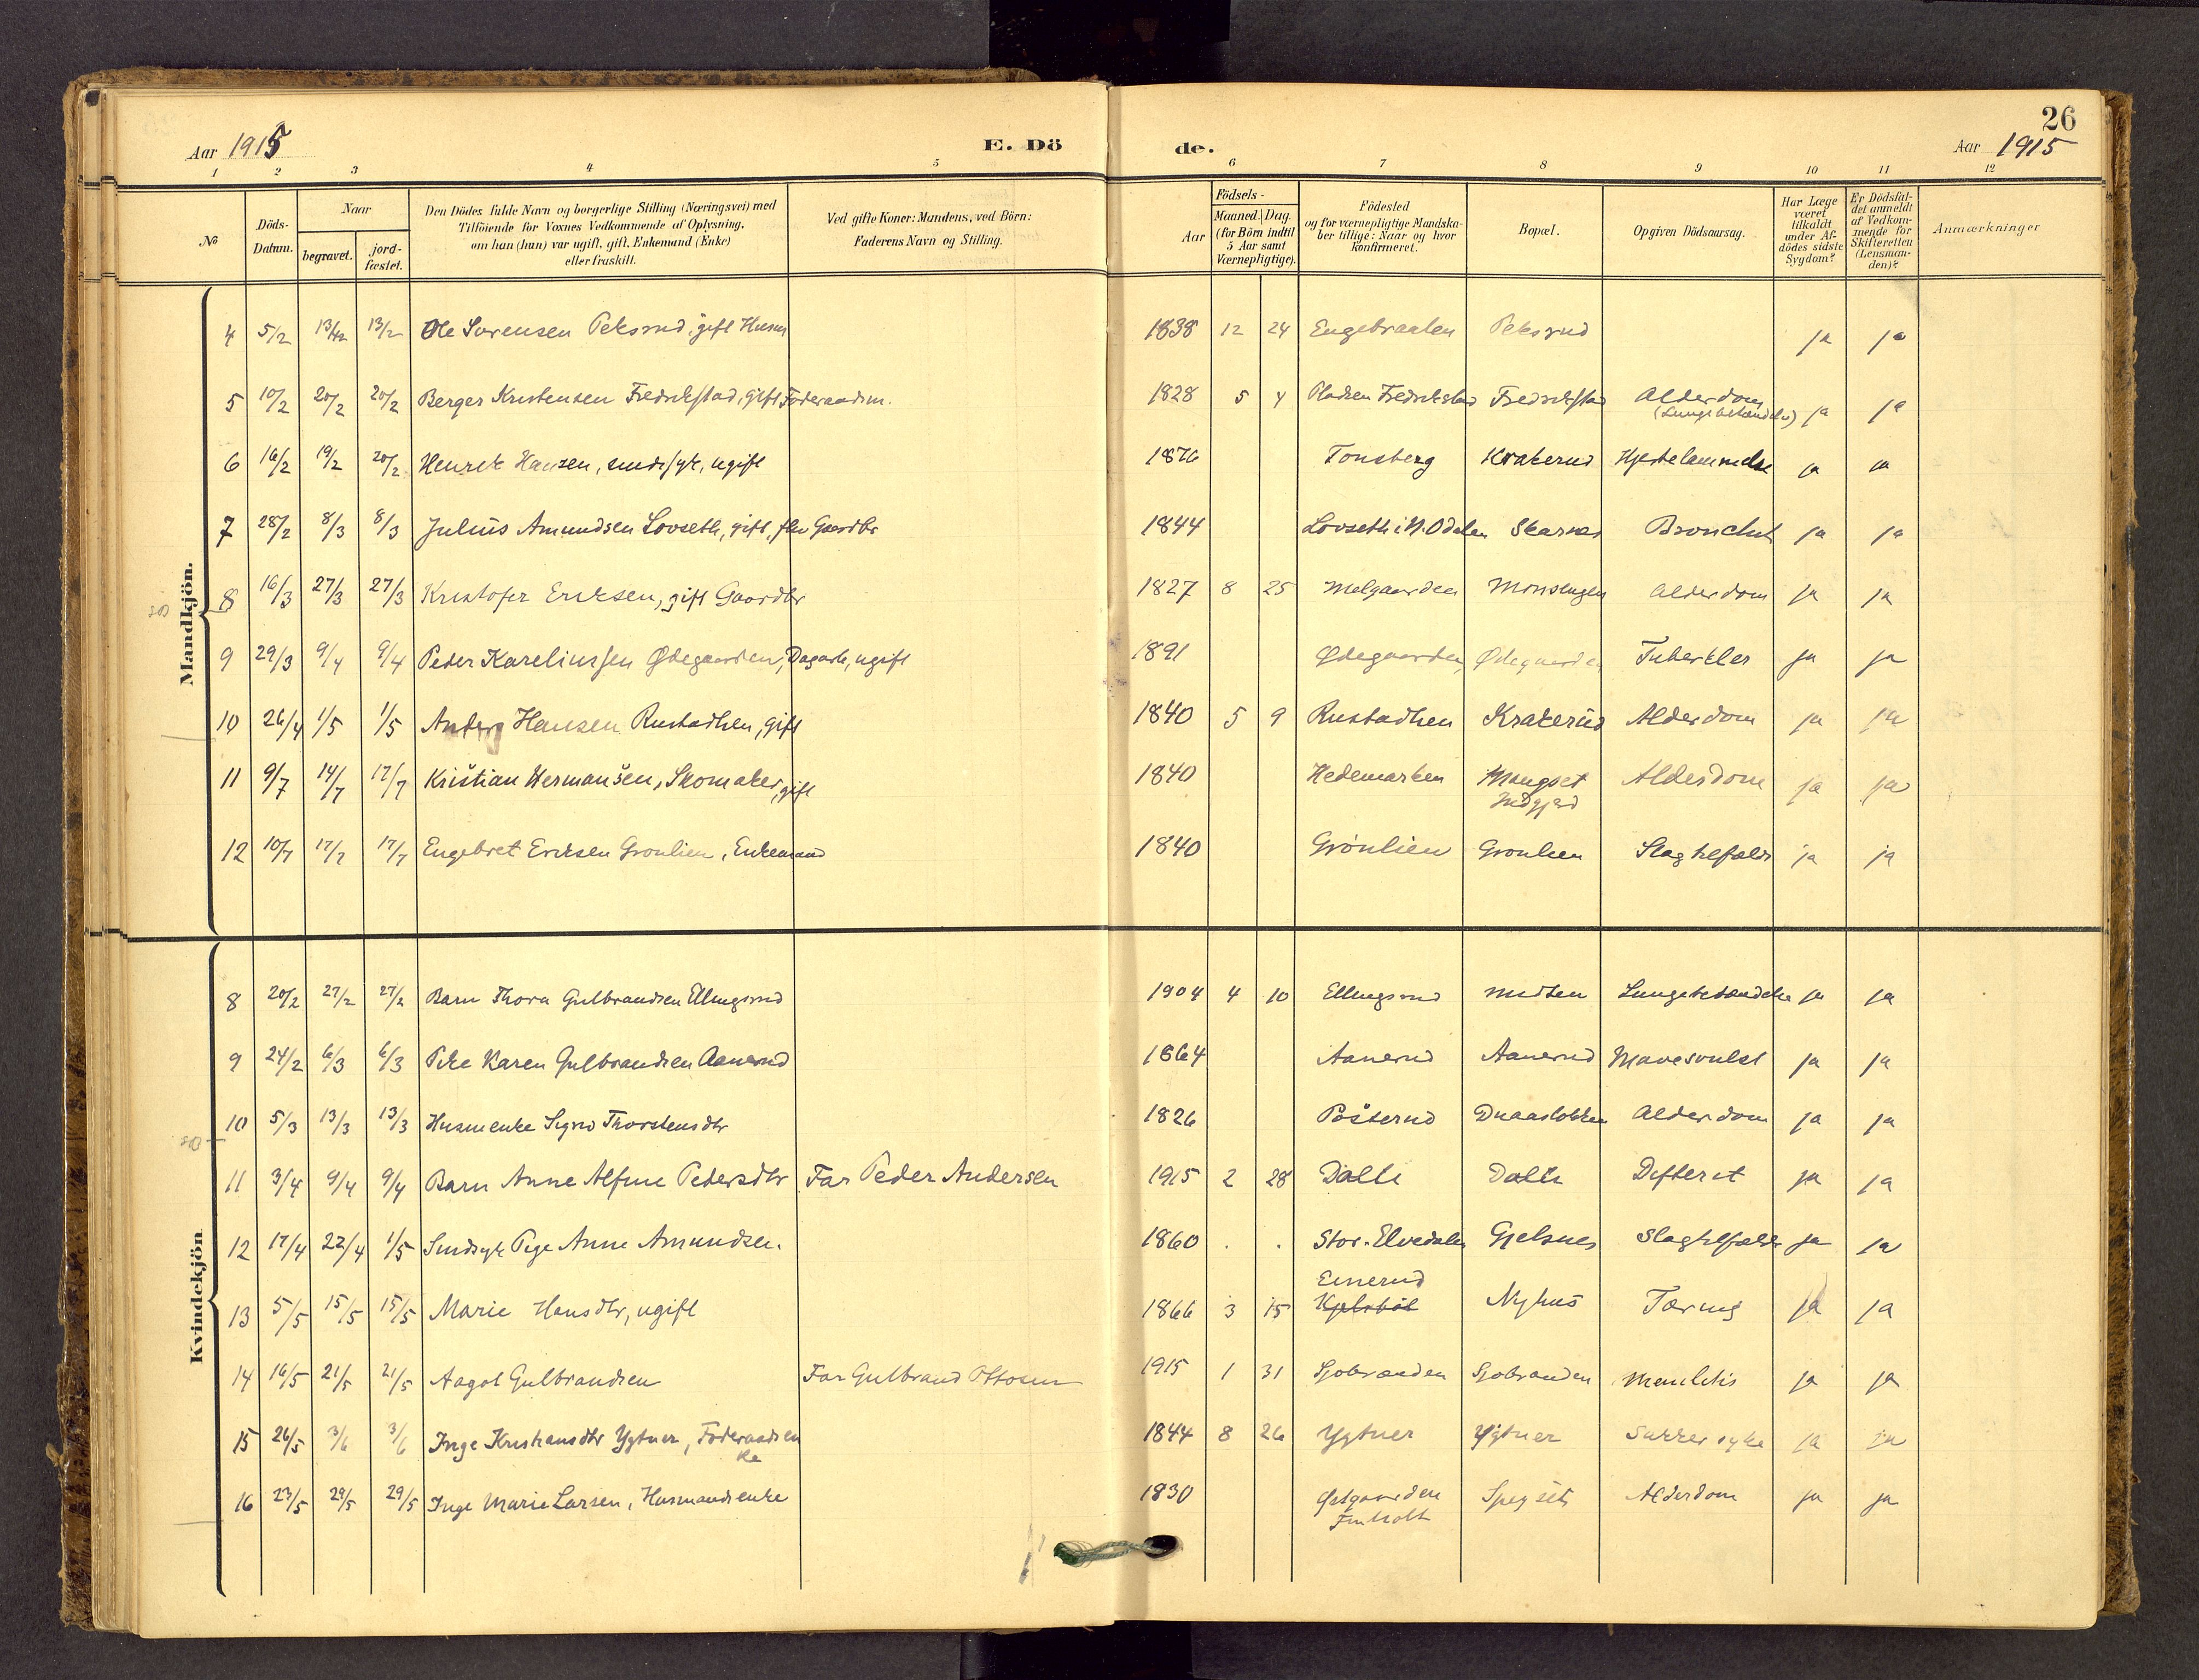 26
Aar 1915 E. Dö de. Aar 1915
1 2 3 4 5 6 7 8 9 10 11 12
№
Döds-
Datum.
Naar
begravet.
jord-
fæstet.
Den Dödes fulde Navn og borgerlige Stilling (Næringsvei) med
Tilföiende for Voxnes Vedkommende af Oplysning,
om han (hun) var ugift, gift, Enkemand (Enke)
eller fraskilt.
Ved gifte Koner: Mandens, ved Börn:
Faderens Navn og Stilling.
Aar
Födsels-
Maaned. Dag.
(for Börn indtil
5 Aar samt
Værnepligtige).
Födested
og for værnepligtige Mandska-
ber tillige: Naar og hvor
konfirmeret.
Bopæl.
Opgiven Dödsaarsag.
Har Læge
været
tilkaldt
under Af-
dödes sidste
Sygdom?
Er Dödsfal-
det anmeldt
af Vedkom-
mende for
Skifteretten
(Lensman-
den)?
Anmærkninger
Mandkjön.
4 5/2 13/2 13/2 Ole Sorensen Peksrud, gift Husm 1838 12 24 Engebraaten Peksrud ja ja
5 10/2 20/2 20/2 Berger Kristensen Fredrikstad, gift Föderaadsm. 1828 5 4 Pladsen Fredrikstad Fredrikstad Alderdom ja ja
6 16/2 19/2 20/2 Henrik Hansen, sindssyk, ugift 1876 Tonsberg Krakerud Hjertelammelse ja ja
7 28/2 8/3 8/3 Julius Amundsen Lovseth, gift, fhv Gaardbr 1844 Lovseth i N. Odalen Skarnes Bronchit ja ja
8 16/3 27/3 27/3 Kristofer Eriksen, gift Gaardbr 1827 8 25 Melgaarden Monsengen Alderdom ja ja
9 29/3 9/4 9/4 Peder Kareliussen Ødegaarden, Dagarb, ugift 1891 Ødegaarden Ødegaarden Tuberkler ja ja
10 26/4 1/5 1/5 Anders Hansen Rustadhen, gift 1840 5 9 Rustadhen Krakerud Alderdom ja ja
11 9/7 14/7 17/7 Kristian Hermansen, Skomaker, gift 1840 Hedemarken Mangset Alderdom ja ja
12 10/7 17/7 17/7 Engebret Eriksen Gronlien, Enkemand 1840 Grönlien Gronlien Slagtilfælde ja ja
Kvindekjön
8 20/2 27/2 27/2 Barn Thora Gulbrandsen Ellingsrud 1904 4 10 Ellingsrud Lungebetændelse ja ja
9 24/2 6/3 6/3 Pike Karen Gulbrandsen Aanerud 1864 Aanerud Aanerud Mavesvulst ja ja
10 5/3 13/3 13/3 Husmenke Signe Thorstensdtr 1826 Pösterud Alderdom ja ja
11 3/4 9/4 9/4 Barn Anne Alfine Pedersdtr Far Peder Andersen 1915 2 28 Dalli Dalli Difterit ja ja
12 17/4 22/4 1/5 Sindsyk Pige Anne Amundsen. 1860 . . Stor-Elvedalen Gjelsnes Slagtilfælde ja ja
Einerud
13 5/5 15/5 15/5 Marie Hansdtr, ugift 1866 3 15 Nyhus Tæring ja ja
14 16/5 21/5 21/5 Aagot Gulbrandsen Far Gulbrand Ottosen 1915 1 31 Sjobranden Sjobranden ja ja
15 26/5 3/6 3/6 Inge Kristiansdtr Ygtner, Foderaadsen
ke 1844 8 26 Ygtner Ygtner Sukkersyke ja ja
16 23/5 29/5 29/5 Inge Marie Larsen, Husmandsenke 1830 Østgaarden Spigset Alderdom ja ja